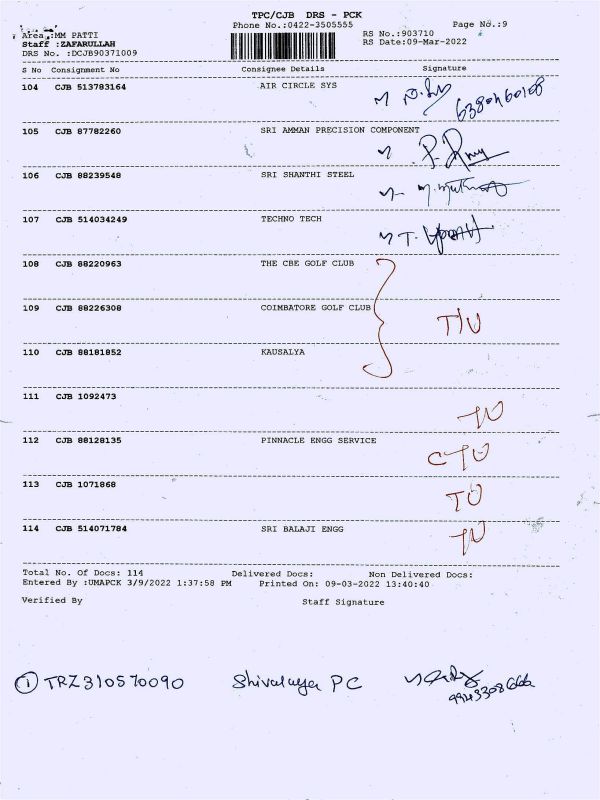 TPC/CJB DRS - PCK
Phone No.:0422-3505555 Page No.:9
Area :MM PATTI RS No.:903710
Staff :ZAFARULLAH RS Date:09-Mar-2022
DRS No. :DCJB90371009
S No Consignment No Consignee Details Signature
104 CJB 513783164 AIR CIRCLE SYS
105 CJB 87782260 SRI AMMAN PRECISION COMPONENT
106 CJB 88239548 SRI SHANTHI STEEL
107 CJB 514034249 TECHNO TECH
108 CJB 88220963 THE CBE GOLF CLUB
109 CJB 88226308 COIMBATORE GOLF CLUB
T/U
110 CJB 88181852 KAUSALYA
111 CJB 1092473
TU
112 CJB 88128135 PINNACLE ENGG SERVICE
CTU
113 CJB 1071868
TU
114 CJB 514071784 SRI BALAJI ENGG
TU
Total No. Of Docs: 114 Delivered Docs: Non Delivered Docs:
Entered By :UMAPCK 3/9/2022 1:37:58 PM Printed On: 09-03-2022 13:40:40
Verified By Staff Signature
① TRZ310570090 Shivalaya PC